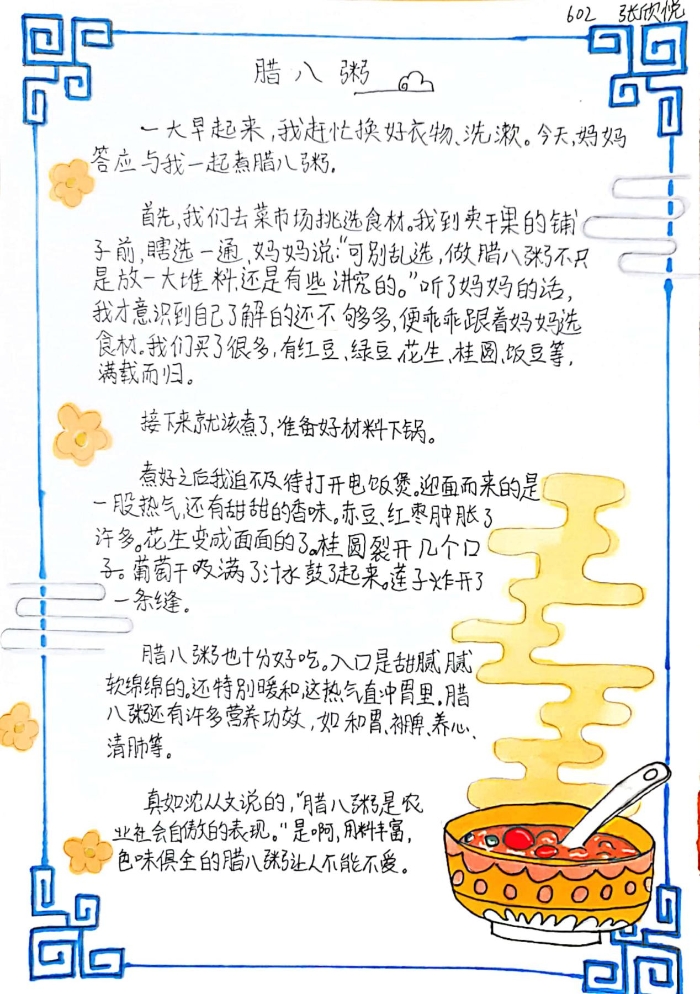 602 张欣悦
腊八粥
一大早起来,我赶忙换好衣物、洗漱。今天,妈妈
答应与我一起煮腊八粥。
首先,我们去菜市场挑选食材。我到卖干果的铺
子前,瞎选一通,妈妈说:“可别乱选,做腊八粥不只
是放一大堆料,还是有些讲究的。”听了妈妈的话,
我才意识到自己了解的还不够多,便乖乖跟着妈妈选
食材。我们买了很多,有红豆、绿豆、花生、桂圆、饭豆等,
满载而归。
接下来就该煮了,准备好材料下锅。
煮好之后我迫不及待打开电饭煲。迎面而来的是
一股热气,还有甜甜的香味。赤豆、红枣肿胀了
许多。花生变成面面的了。桂圆裂开几个口
子。葡萄干吸满了汁水鼓了起来。莲子炸开了
一条缝。
腊八粥也十分好吃。入口是甜腻腻
软绵绵的,还特别暖和,这热气直冲胃里。腊
八粥还有许多营养功效,如和胃、补脾、养心、
清肺等。
真如沈从文说的,“腊八粥是农
业社会自傲的表现。”是啊,用料丰富,
色味俱全的腊八粥让人不能不爱。